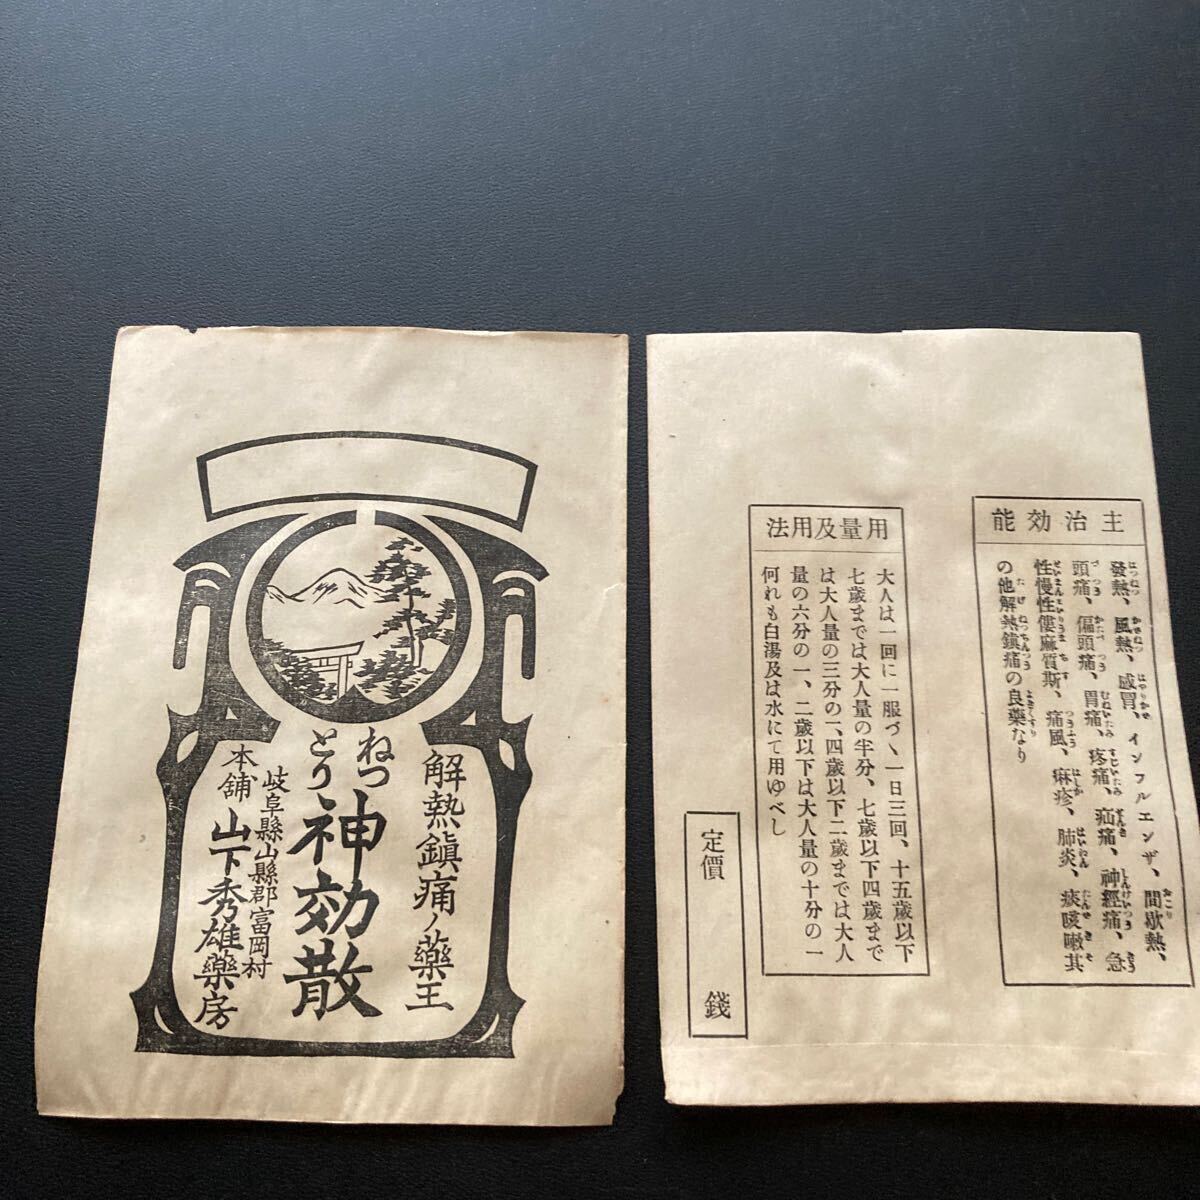 解熱鎮痛ノ藥王
ねつ
とり
神効散
岐阜縣山縣郡富岡村
本舗
山下秀雄藥房
主治効能
發熱、風熱、感冒、インフルエンザ、間歇熱、
頭痛、偏頭痛、胃痛、疼痛、疝痛、神經痛、急
性慢性僂麻質斯、痛風、麻疹、肺炎、痰咳嗽其
の他解熱鎭痛の良藥なり
用量及用法
大人は一回に一服づゝ一日三回、十五歳以下
七歳までは大人量の半分、七歳以下四歳まで
は大人量の三分の一、四歳以下二歳までは大人
量の六分の一、二歳以下は大人量の十分の一
何れも白湯及は水にて用ゆべし
定價 錢